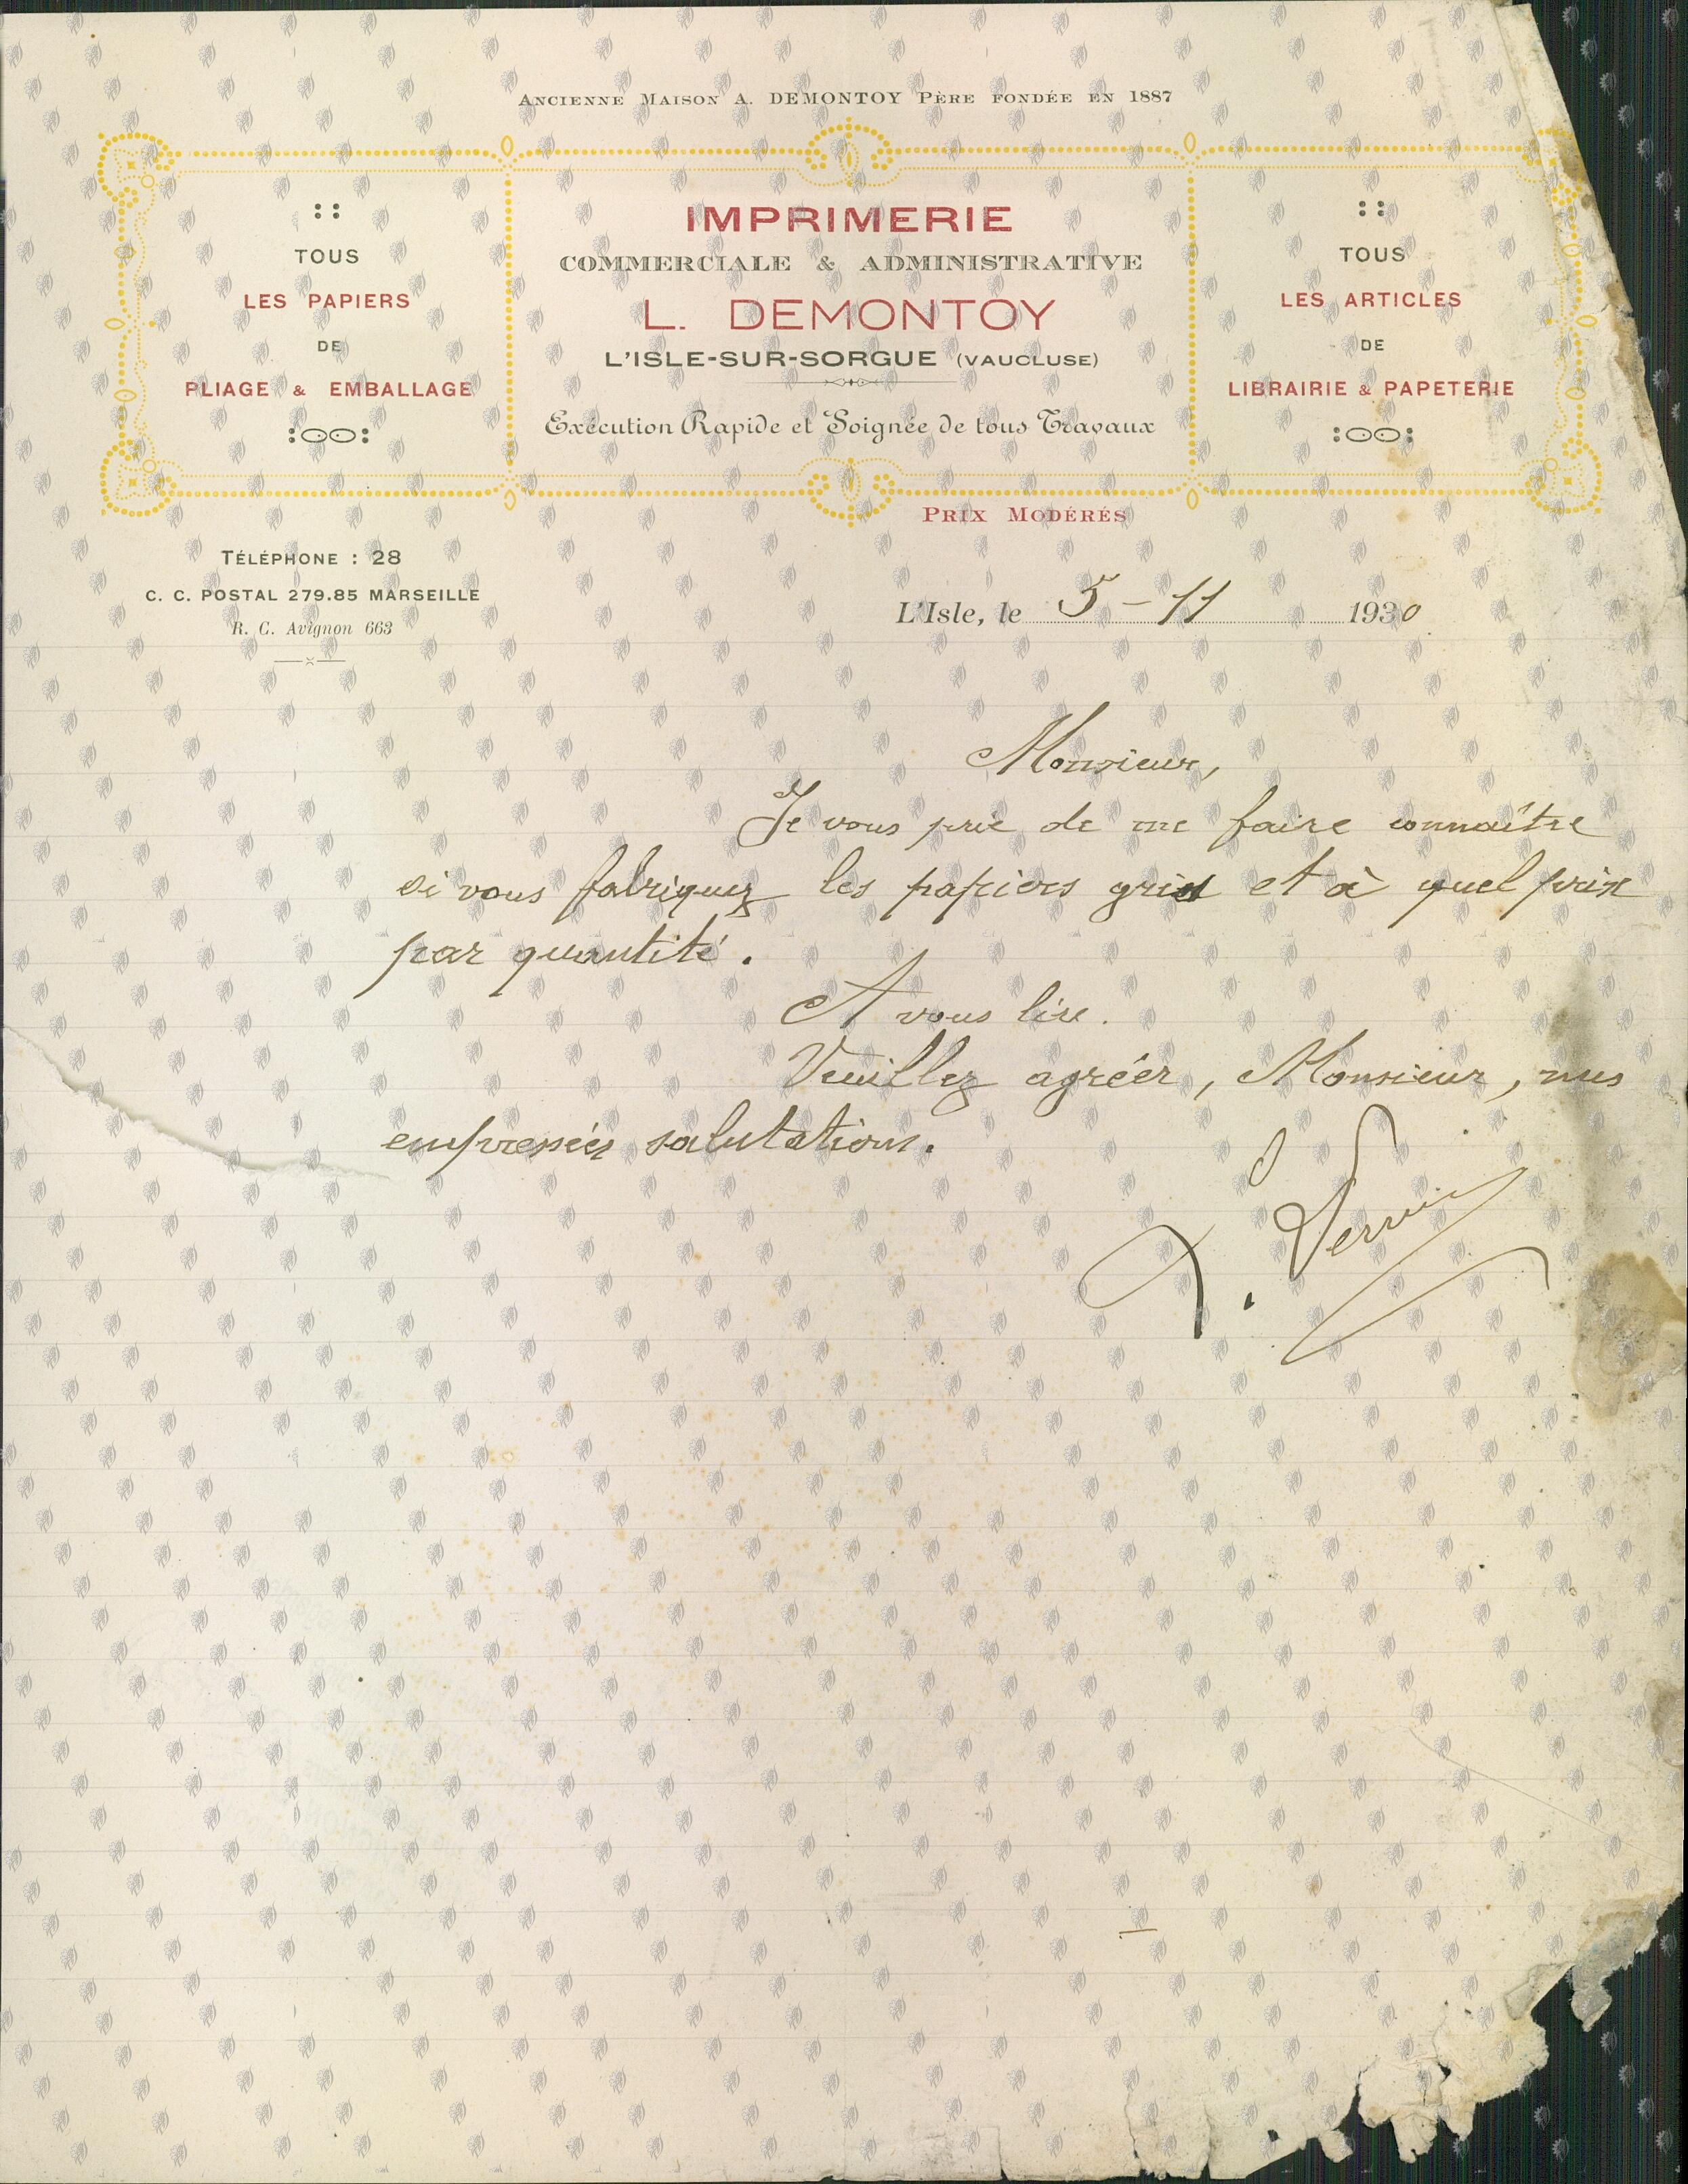 ANCIENNE MAISON A. DEMONTOY PÈRE FONDÉE EN 1887
TOUS
LES PAPIERS
DE
PLIAGE & EMBALLAGE
IMPRIMERIE
COMMERCIALE & ADMINISTRATIVE
L. DEMONTOY
L'ISLE-SUR-SORGUE (VAUCLUSE)
Exécution Rapide et Soignée de tous Travaux
TOUS
LES ARTICLES
DE
LIBRAIRIE & PAPETERIE
PRIX MODÉRÉS
TÉLÉPHONE : 28
C. C. POSTAL 279.85 MARSEILLE
R. C. Avignon 663
L'Isle, le 5 - 11 1930
Monsieur,
Je vous prie de me faire connaître
si vous fabriquez les papiers gris et à quel prix
par quantité.
A vous lire.
Veuillez agréer, Monsieur, mes
empressées salutations.